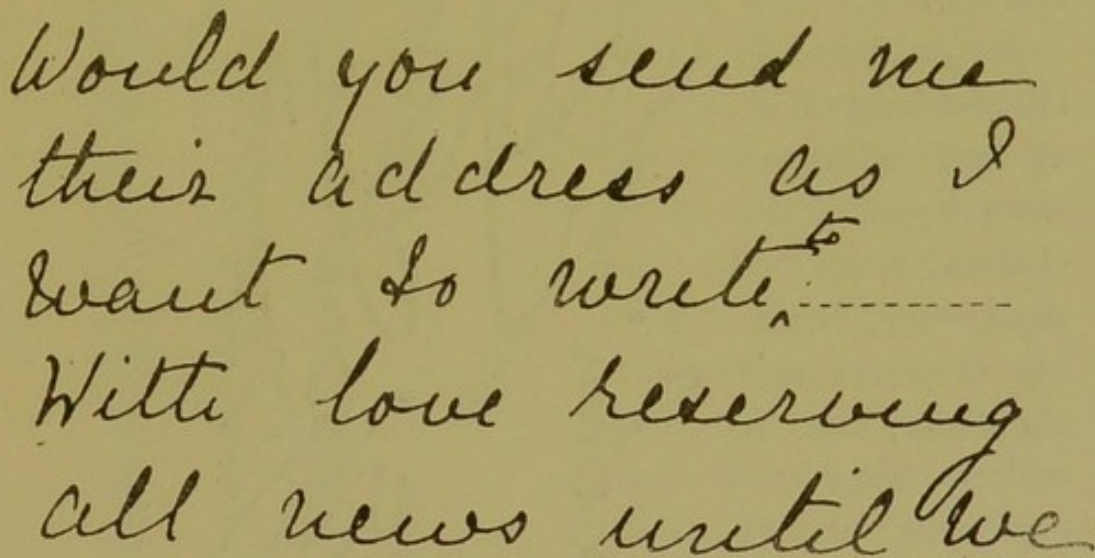 Would you send me
their address as I
want to write ^to ..........
With love reserving
all news until we